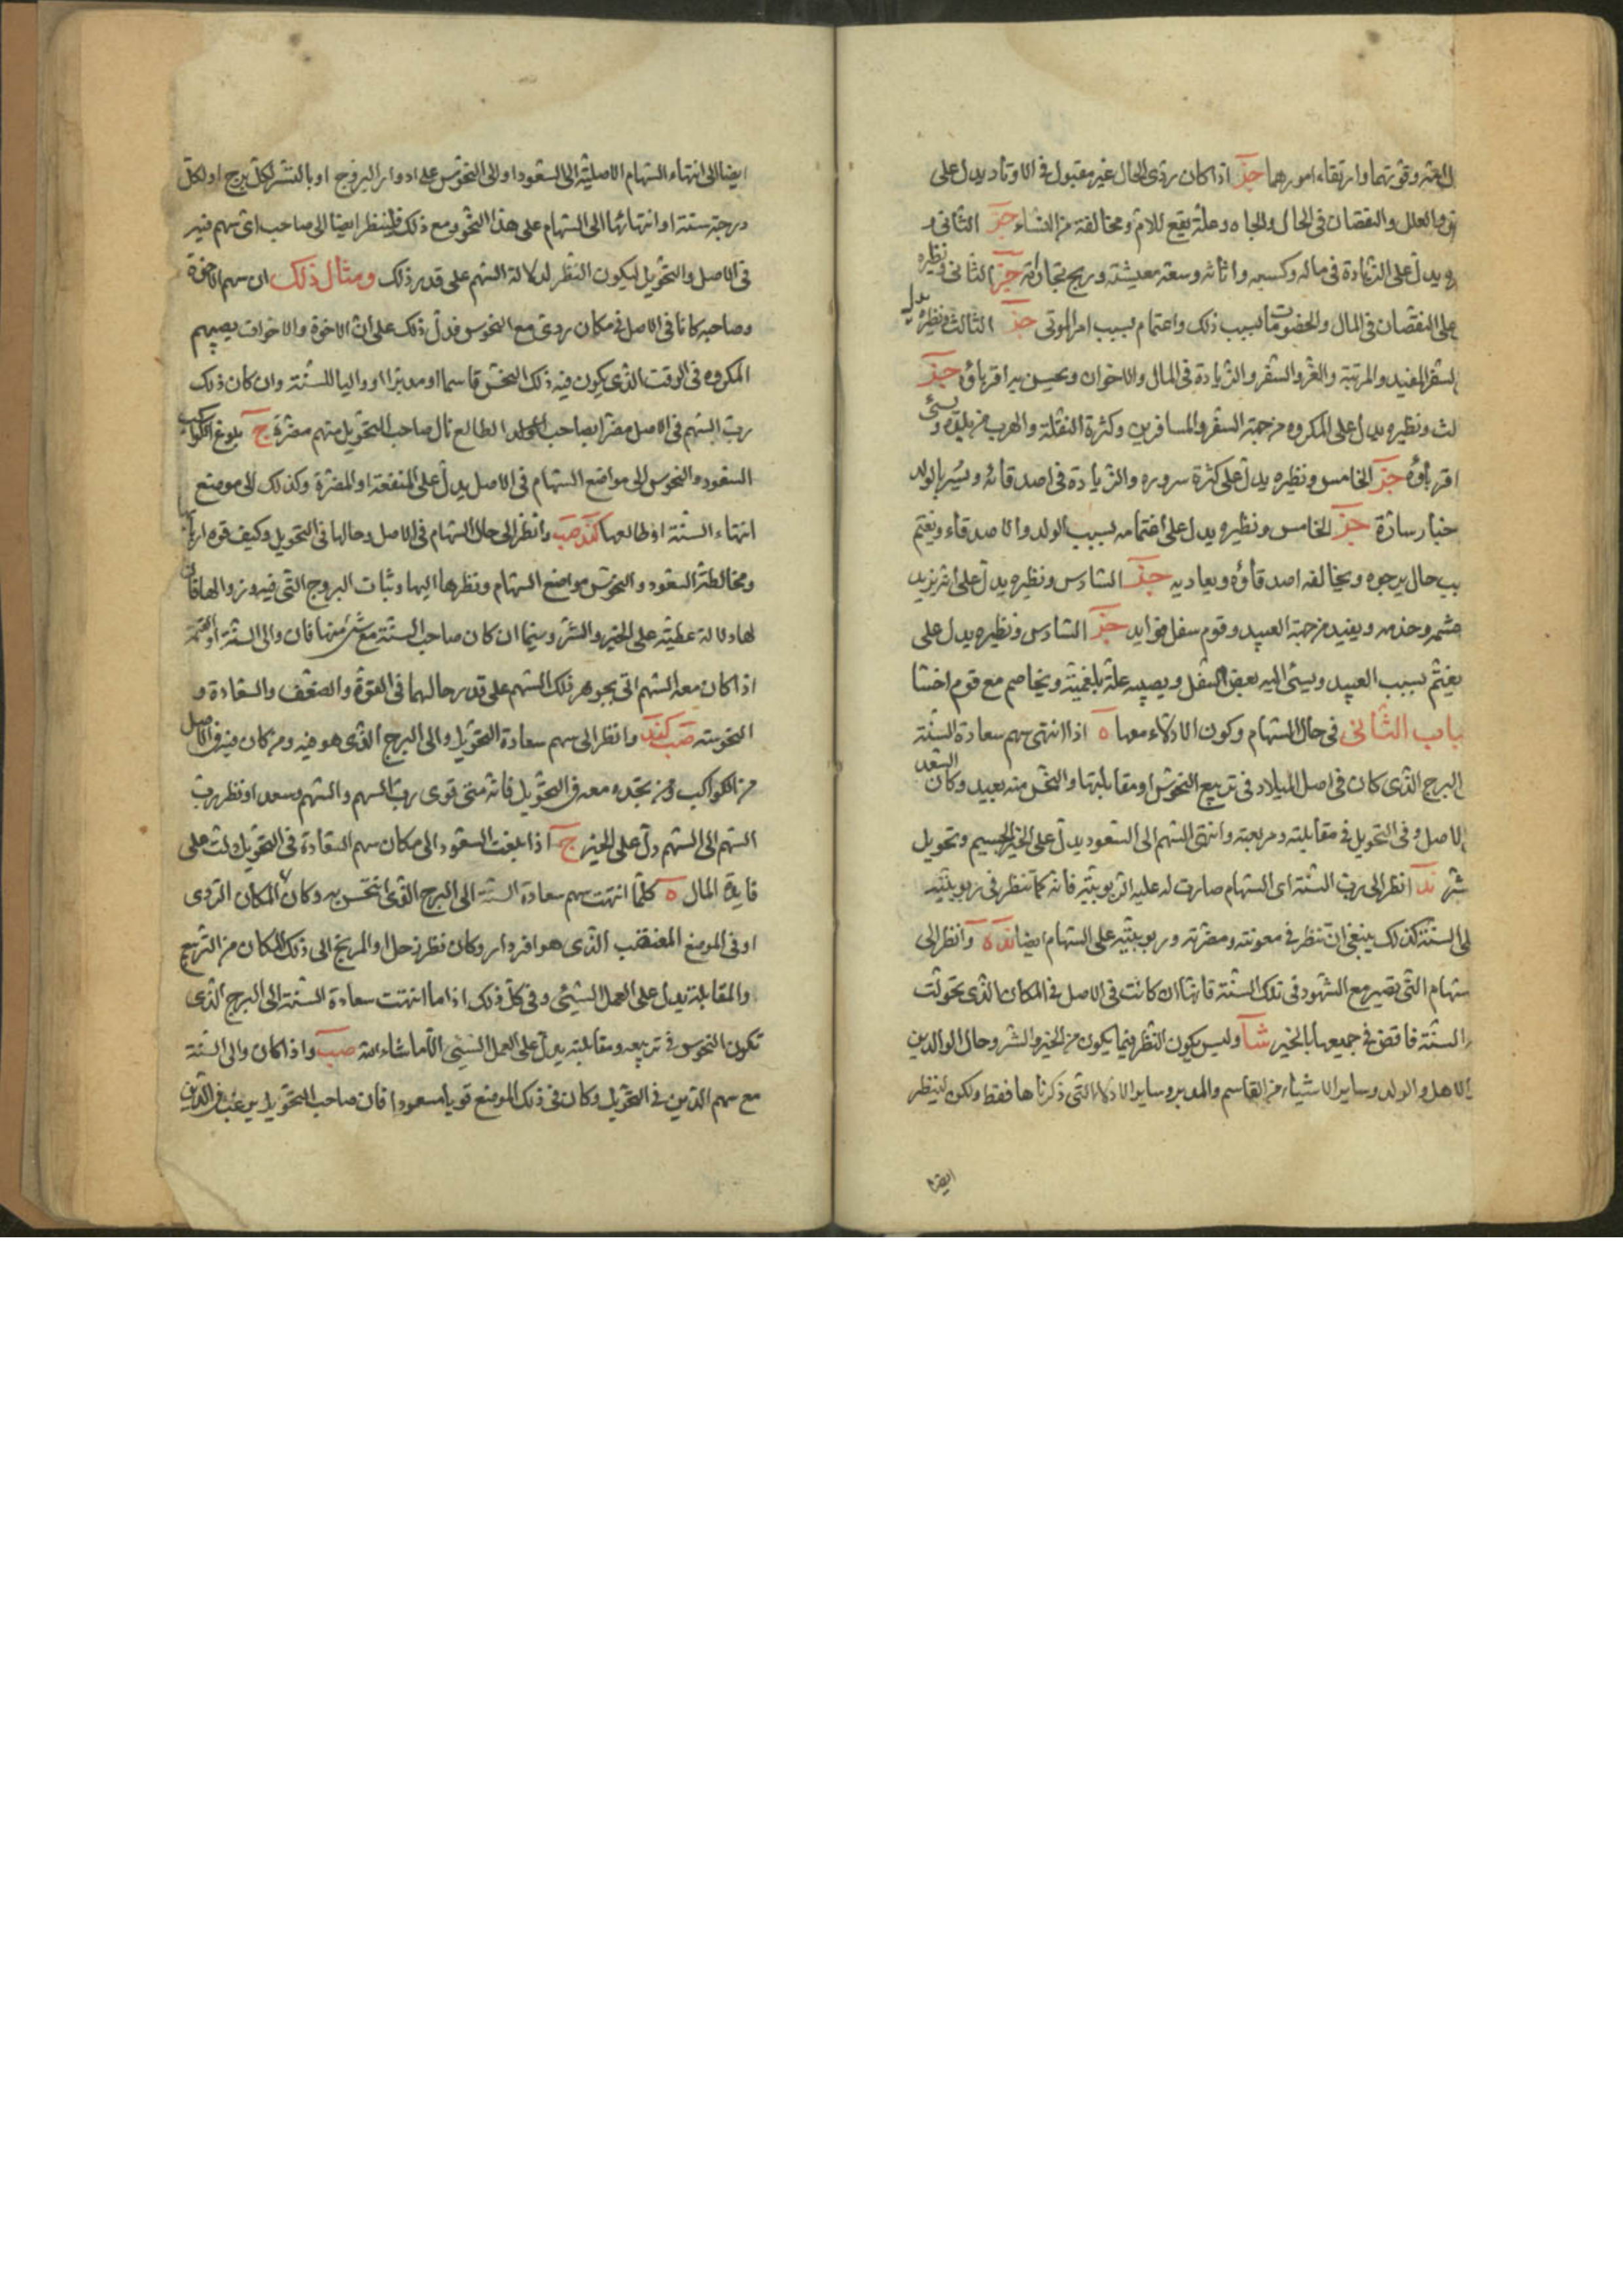 وقوتهما وارتقاء امورهما جز اذا كان ردى الحال غير مقبول فى الاوتاد يدل على
والعلل والنقصان فى الحال والجاه وعلة يقع للام ومخالفة من النساء جز الثانى و
يدل على الزيادة فى ماله وكسبه واثاثه وسعة معيشته وربح تجاراته جز الثانى ونظيره
يدل على النقصان فى المال والخصومات بسبب ذلك واغتمام بسبب امر الموتى جز الثالث ونظيره
السفر المفيد والمرتبة والعز والسفر والزيادة فى المال والاخوان ويحسن به اقرباؤه جز
لث ونظيره يدل على المكروه من جهة السفر والمسافرين وكثرة النقلة والهرب من بلده ويسئ
اقرباؤه جز الخامس ونظيره يدل على كثرة سروره والزيادة فى اصدقائه ويسر بالولد
خبار سارة جز الخامس ونظيره يدل على اغتمامه بسبب الولد والاصدقاء ويغتم
بب حال يرجوه ويخالفه اصدقاؤه ويعاديه جز السادس ونظيره يدل على انه يزيد
حشمه وخدمه ويفيد من جهة العبيد وقوم سفل فوايد جز السادس ونظيره يدل على
يغتم بسبب العبيد ويسئ اليه بعض السفل ويصيبه علة بلغمية ويخاصم مع قوم اخشا
باب الثانى فى حال السهام وكون الادلاء معها ه اذا انتهى سهم سعادة السنة
البرج الذى كان فى اصل الميلاد فى تربيع النحوس او مقابلتها والنحس منه بعيد وكان السعد
الاصل وفى التحويل فى مقابلته ومربعته وانتهى السهم الى السعود يدل على الخير الجسيم وتحويل
شر ند انظر الى رب السنة اى السهام صارت له عليه الربوبية فانه كما تنظر فى ربوبيته
لى السنة كذلك ينبغى ان تنظر فى معونته ومضرته وربوبيته على السهام ايضا نده وانظر الى
سهام التى تصير مع الشهود فى تلك السنة فانها ان كانت فى الاصل فى المكان الذى تحولت
السنة فاقض فى جميعها بالخير شا وليس يكون النظر فيما يكون من الخير والشر وحال الوالدين
الاهل والولد وساير الاشياء من القاسم والمدبر وساير الادلاء التى ذكرناها فقط ولكن لينظر
ايضا
ايضا الى انتهاء السهام الاصلية الى السعود او الى النحوس على ادوار البروج او بالتسير لكل برج او لكل
درجة سنة او انتهائها الى السهام على هذا النحو ومع ذلك فلينظر ايضا الى صاحب اى سهم فيه
فى الاصل والتحويل ليكون النظر لدلالة السهم على قدر ذلك ومثال ذلك ان سهم الاخوة
وصاحبه كانا فى الاصل فى مكان ردى مع النحوس فدل ذلك على ان الاخوة والاخوات يصيبهم
المكروه فى الوقت الذى يكون فيه ذلك النحس قاسما او مدبرا او واليا للسنة وان كان ذلك
رب السهم فى الاصل مضرا بصاحب الطالع نال صاحب التحويل منهم مضرة ج بلوغ الكواكب
السعود والنحوس الى مواضع السهام فى الاصل يدل على المنفعة او المضرة وكذلك الى موضع
انتهاء السنة او طالعها كند صب وانظر الى حال السهام فى الاصل وحالها فى التحويل وكيف قوة اربابها
ومخالطة السعود والنحوس مواضع السهام ونظرها اليها وثبات البروج التى فيه وزوالها فان
لها دلالة عظيمة على الخير والشر وسيما ان كان صاحب السنة مع شئ منها فان والى السنة او القسمة
اذا كان معه السهم اتى بجوهر ذلك السهم على قدر حالهما فى القوة والضعف والسعادة و
النحوسة صب كند وانظر الى سهم سعادة التحويل والى البرج الذى هو فيه ومن كان فيه فى الاصل
من الكواكب ومن تجده معه فى التحويل فانه متى قوى رب السهم والسهم وسعد او نظر رب
السهم الى السهم دل على الخير ج اذا بلغت السعود الى مكان سهم السعادة فى التحويل دلت على
فايدة المال ه كلما انتهت سهم سعادة السنة الى البرج الذى انتحس به وكان المكان الردى
او فى الموضع الذى هو افردار وكان نظر زحل او المريخ الى ذلك المكان من التربيع
والمقابلة يدل على العمل السيئ وفى كل ذلك اذا ما انتهت سعادة السنة الى البرج الذى
تكون النحوس فى تربيعه ومقابلته يدل على العمل السيئ الا ما شاء الله صب واذا كان والى السنة
مع سهم الدين فى التحويل وكان فى ذلك الموضع قويا مسعودا فان صاحب التحويل يرغب فى الدين